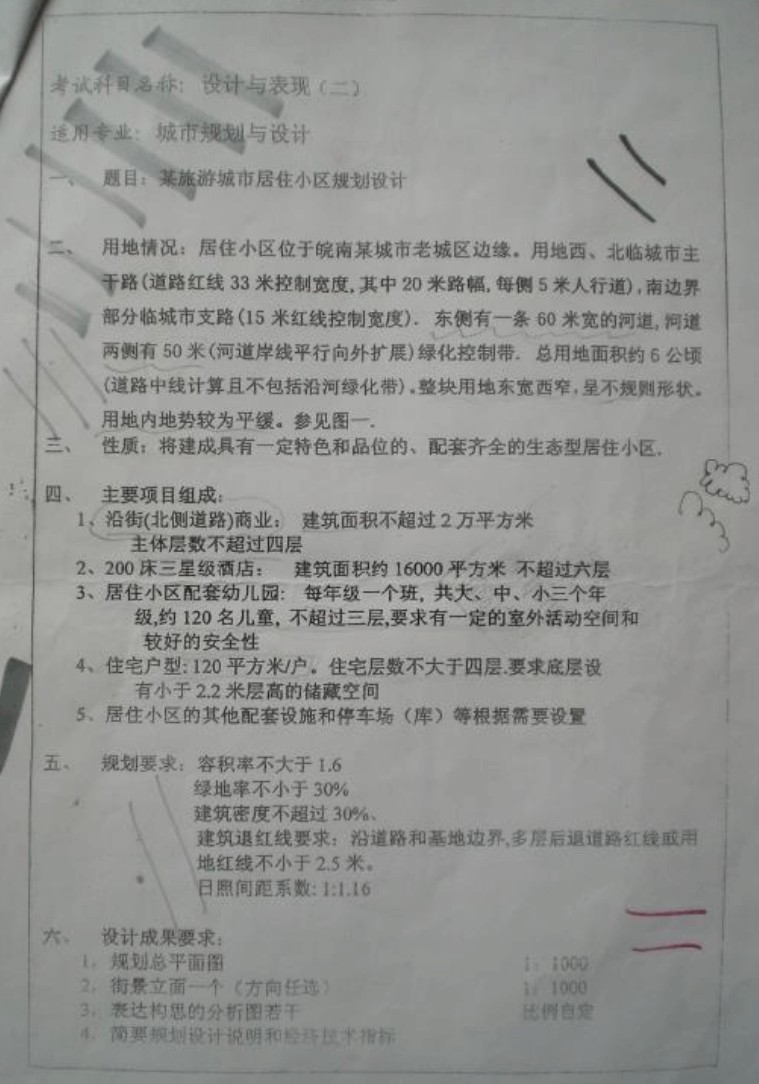 考试科目名称：设计与表现（二）
适用专业：城市规划与设计
一、 题目：某旅游城市居住小区规划设计
二、 用地情况：居住小区位于皖南某城市老城区边缘。用地西、北临城市主
干路(道路红线 33 米控制宽度,其中 20 米路幅,每侧 5 米人行道),南边界
部分临城市支路(15 米红线控制宽度). 东侧有一条 60 米宽的河道,河道
两侧有 50 米(河道岸线平行向外扩展)绿化控制带. 总用地面积约 6 公顷
(道路中线计算且不包括沿河绿化带)。整块用地东宽西窄,呈不规则形状。
用地内地势较为平缓。参见图一.
三、 性质：将建成具有一定特色和品位的、配套齐全的生态型居住小区.
四、 主要项目组成：
1、沿街(北侧道路)商业： 建筑面积不超过 2 万平方米
主体层数不超过四层
2、200 床三星级酒店： 建筑面积约 16000 平方米 不超过六层
3、居住小区配套幼儿园: 每年级一个班, 共大、中、小三个年
级,约 120 名儿童, 不超过三层,要求有一定的室外活动空间和
较好的安全性
4、住宅户型:120 平方米/户。住宅层数不大于四层.要求底层设
有小于 2.2 米层高的储藏空间
5、居住小区的其他配套设施和停车场（库）等根据需要设置
五、 规划要求：容积率不大于 1.6
绿地率不小于 30%
建筑密度不超过 30%、
建筑退红线要求：沿道路和基地边界,多层后退道路红线或用
地红线不小于 2.5 米。
日照间距系数: 1:1.16
六、 设计成果要求：
1. 规划总平面图 1：1000
2. 街景立面一个（方向任选） 1：1000
3. 表达构思的分析图若干 比例自定
4. 简要规划设计说明和经济技术指标